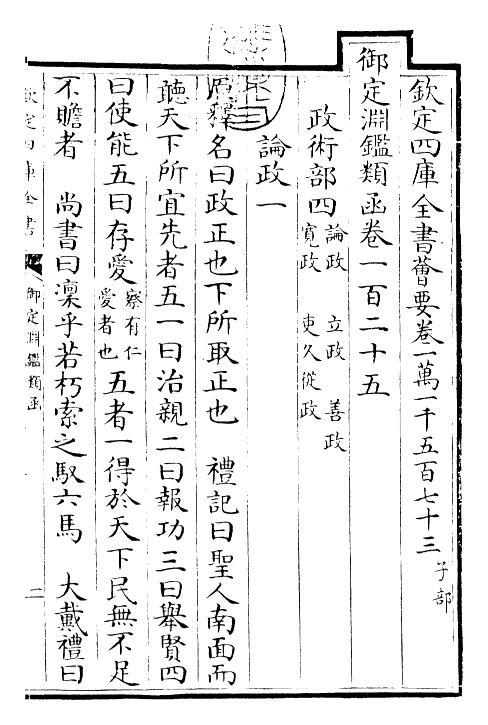 欽定四庫全書薈要卷一萬一千五百七十三 子部
御定淵鑑類函卷一百二十五
政術部四 論政 立政 善政
寬政 吏久從政
論政一
原釋名曰政正也下所取正也 禮記曰聖人南面而
聽天下所宜先者五一曰治親二曰報功三曰舉賢四
曰使能五曰存愛 察有仁
愛者也 五者一得於天下民無不足
不贍者 尚書曰凜乎若朽索之馭六馬 大戴禮曰
欽定四庫全書 御定淵鑑類函 二